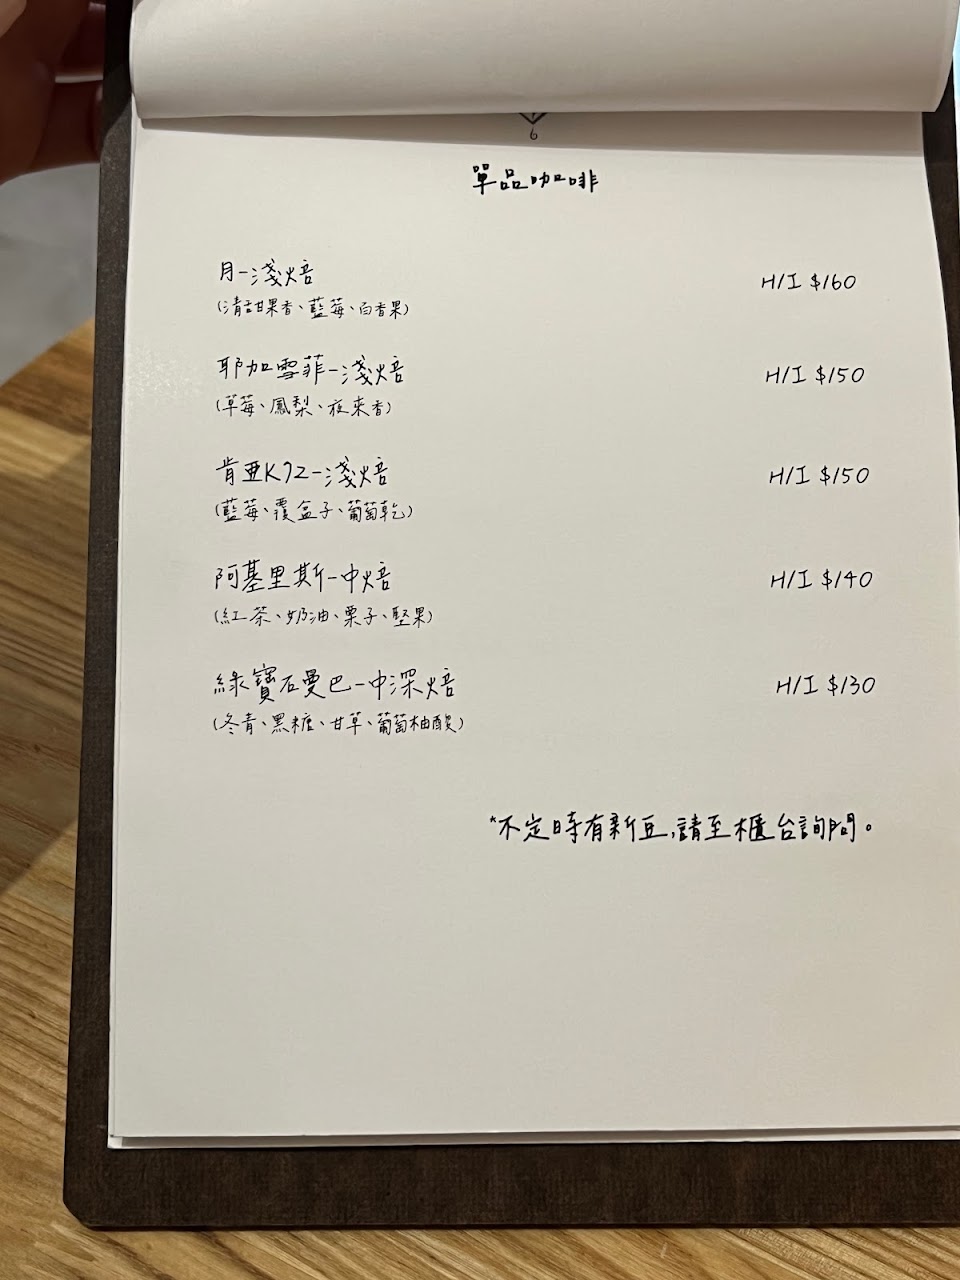 6
單品咖啡
月-淺焙 H/I $160
(清甜果香、藍莓、百香果)
耶加雪菲-淺焙 H/I $150
(草莓、鳳梨、夜來香)
肯亞K72-淺焙 H/I $150
(藍莓、覆盆子、葡萄乾)
阿基里斯-中焙 H/I $140
(紅茶、奶油、栗子、堅果)
綠寶石曼巴-中深焙 H/I $130
(冬青、黑糖、甘草、葡萄柚酸)
*不定時有新豆,請至櫃台詢問。